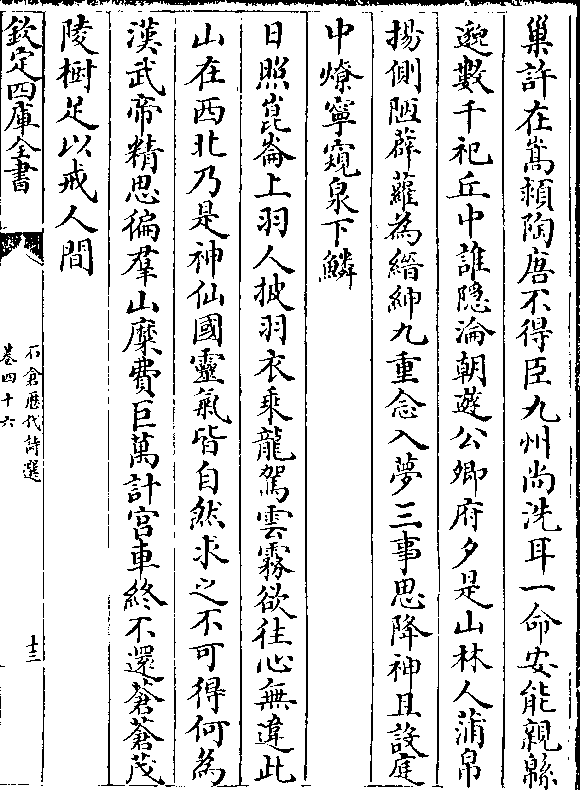 巢許在嵩頴陶唐不得臣九州尚洗耳一命安能親緜
邈數千祀丘中誰隠淪朝遊公卿府夕是山林人蒲帛
揚側陋薜蘿為縉紳九重念入夢三事思降神且設庭
中燎寧窺泉下鱗
日照崑崙上羽人披羽衣乗龍駕雲霧欲往心無違此
山在西北乃是神仙國靈氣皆自然求之不可得何為
漢武帝精思徧羣山糜費巨萬計宫車終不還蒼蒼茂
陵樹足以戒人間
欽定四庫全書
石倉歴代詩選
巻四十六
十三